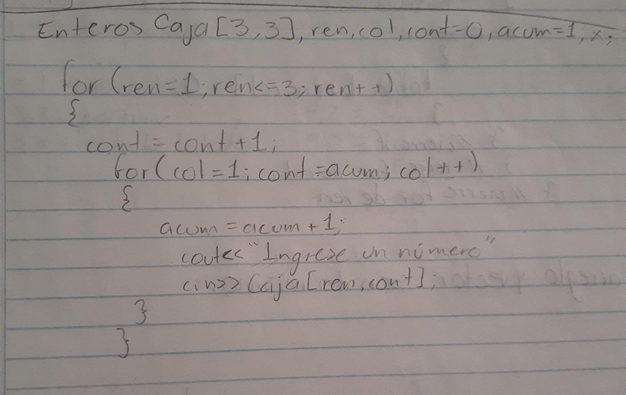 Enteros Caja[3,3], ren, col, cont=0, acum=1, x;
for (ren=1; ren<=3; ren++)
{
cont = cont+1;
for (col=1; cont=acum; col++)
{
acum = acum+1;
cout<<"Ingrese un número"
cin>> Caja[ren,cont];
}
}